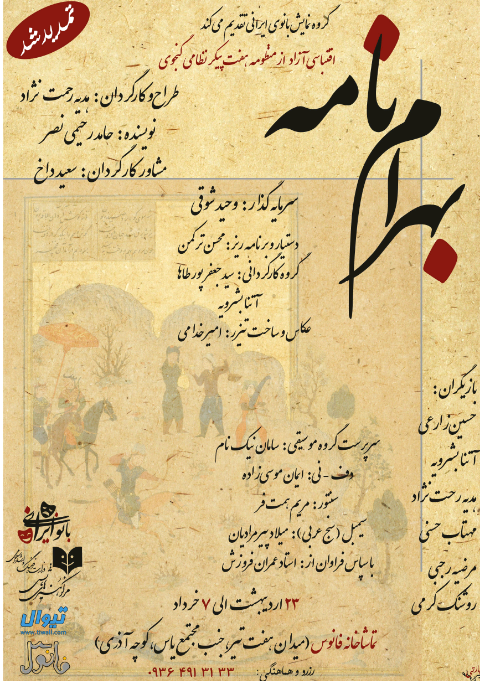 تمدید شد
گروه نمایش بانوی ایرانی تقدیم می کند
اقتباسی آزاد از منظومه هفت پیکر نظامی گنجوی
بهرام نامه
طراح و کارگردان: مدیه رحمت نژاد
نویسنده: حامد رحیمی نصر
مشاور کارگردان: سعید داخ
سرمایه گذار: وحید شوقی
دستیار و برنامه ریز: محسن ترکمن
گروه کارگردانی: سید جعفر پور طاها
آتنا بشرویه
عکاس و ساخت تیزر: امیر خدامی
بازیگران:
حسین زارعی
آتنا بشرویه
مدیه رحمت نژاد
مهتاب حسنی
مرضیه رجبی
روشنک کرمی
سرپرست گروه موسیقی: سامان نیک نام
دف - نی: ایمان موسی زاده
سنتور: مریم همت فر
سیمبل (سنج عربی): میلاد پیرمرادیان
با سپاس فراوان از: استاد عمران فرورش
بانو ایرانی
مرکز هنرپژوهی نقش جهان
تیوال
www.tiwall.com
فانوس
۲۳ اردیبهشت الی ۷ خرداد
تماشاخانه فانوس (میدان هفت تیر، جنب مجتمع یاس، کوچه آذری)
رزرو و هماهنگی: ۰۹۳۶ ۴۹۱ ۳۱ ۳۳